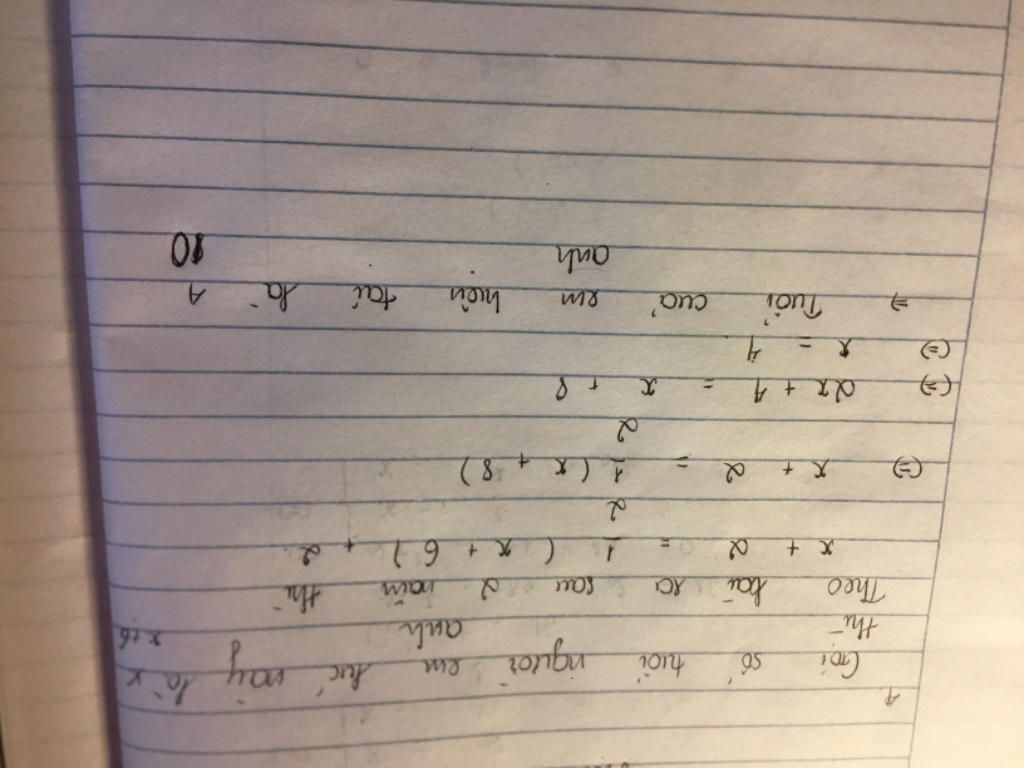 1
Gọi số tuổi người em lúc này là x
thì anh x+6
Theo bài ra sau 2 năm thì
x + 2 = 1/2 ( x + 6 ) + 2
(=) x + 2 = 1/2 ( x + 8 )
(=) 2x + 4 = x + 8
(=) x = 4
=> Tuổi của em hiện tại là 4
anh 10